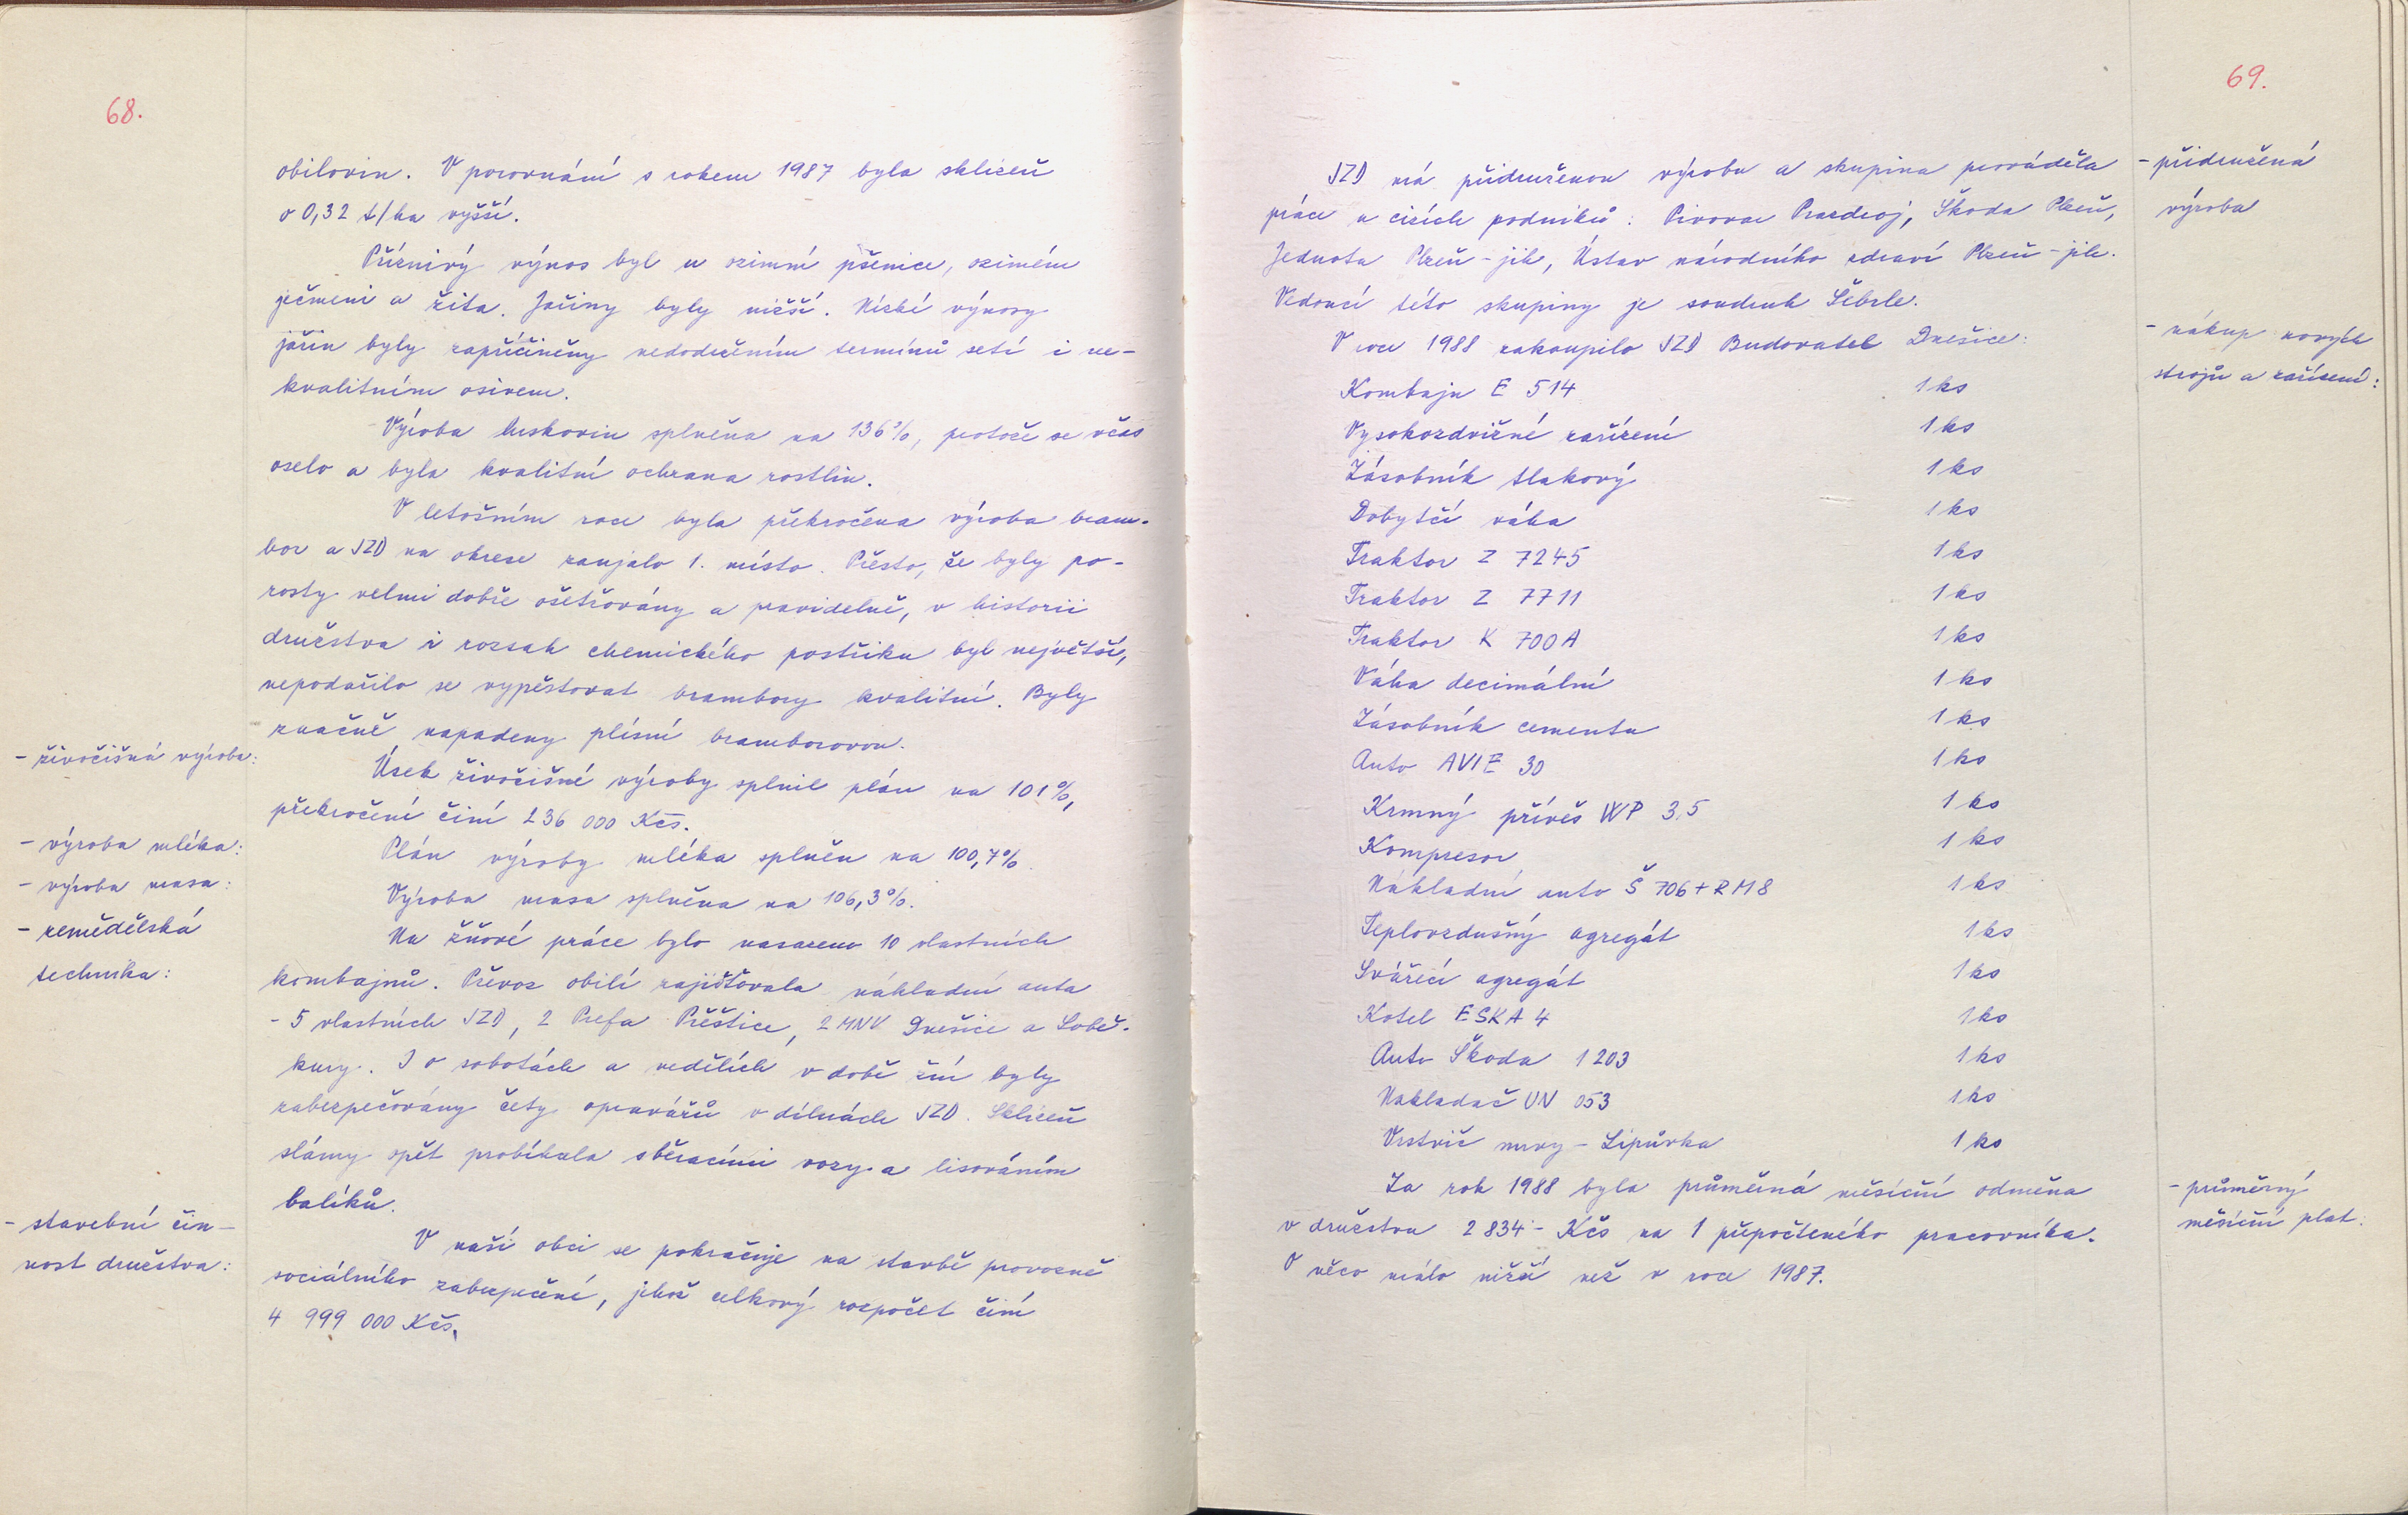 68.
obilovin. V porovnání s rokem 1987 byla sklizeň
o 0,32 t/ha vyšší.
Příznivý výnos byl u ozimní pšenice, ozimém
ječmeni a žita. Jařiny byly nižší. Nízké výnosy
jařin byly zapříčiněny nedodržením termínů setí i ne-
kvalitním osivem.
Výroba luskovin splněna na 136%, protože se včas
oselo a byla kvalitní ochrana rostlin.
V letošním roce byla překročena výroba bram-
bor a JZD na okrese zaujalo 1. místo. Přesto, že byly po-
rosty velmi dobře ošetřovány a pravidelně, v historii
družstva i rozsah chemického postřiku byl největší,
nepodařilo se vypěstovat brambory kvalitní. Byly
značně napadeny plísní bramborovou.
- živočišná výroba:
Úsek živočišné výroby splnil plán na 101%,
překročení činí 236 000 Kčs.
- výroba mléka:
Plán výroby mléka splněn na 100,7%.
- výroba masa:
Výroba masa splněna na 106,3%.
- zemědělská
technika:
Na žňové práce bylo nasazeno 10 vlastních
kombajnů. Převoz obilí zajišťovala nákladní auta
- 5 vlastních JZD, 2 Prefa Přeštice, 2 MNV Dnešice a Sobě-
kury. I v sobotách a nedělích v době žní byly
zabezpečovány čety opravářů v dílnách JZD. Sklizeň
slámy opět probíhala sběracími vozy a lisováním
balíků.
- stavební čin-
nost družstva:
V naší obci se pokračuje na stavbě provozně
sociálního zabezpečení, jehož celkový rozpočet činí
4 999 000 Kčs.
69.
JZD má přidruženou výrobu a skupina prováděla
práce u cizích podniků: Pivovar Prazdroj, Škoda Plzeň,
Jednota Plzeň - jih, Ústav národního zdraví Plzeň - jih.
Vedoucí této skupiny je soudruh Šebrle.
- přidružená
výroba
V roce 1988 zakoupilo JZD Budovatel Dnešice:
- nákup nových
strojů a zařízení:
Kombajn E 514 1 ks
Vysokozdvižné zařízení 1 ks
Zásobník tlakový 1 ks
Dobytčí váha 1 ks
Traktor Z 7245 1 ks
Traktor Z 7711 1 ks
Traktor K 700A 1 ks
Váha decimální 1 ks
Zásobník cementu 1 ks
Auto AVIE 30 1 ks
Krmný přívěs WP 3,5 1 ks
Kompresor 1 ks
Nákladní auto Š 706 + RM8 1 ks
Teplovzdušný agregát 1 ks
Svářecí agregát 1 ks
Kotel ESKA 4 1 ks
Auto Škoda 1203 1 ks
Nakladač UN 053 1 ks
Vrstvič mrvy - Lipůvka 1 ks
Za rok 1988 byla průměrná měsíční odměna
v družstvu 2 834,- Kčs na 1 přepočteného pracovníka.
O něco málo nižší než v roce 1987.
- průměrný
měsíční plat: